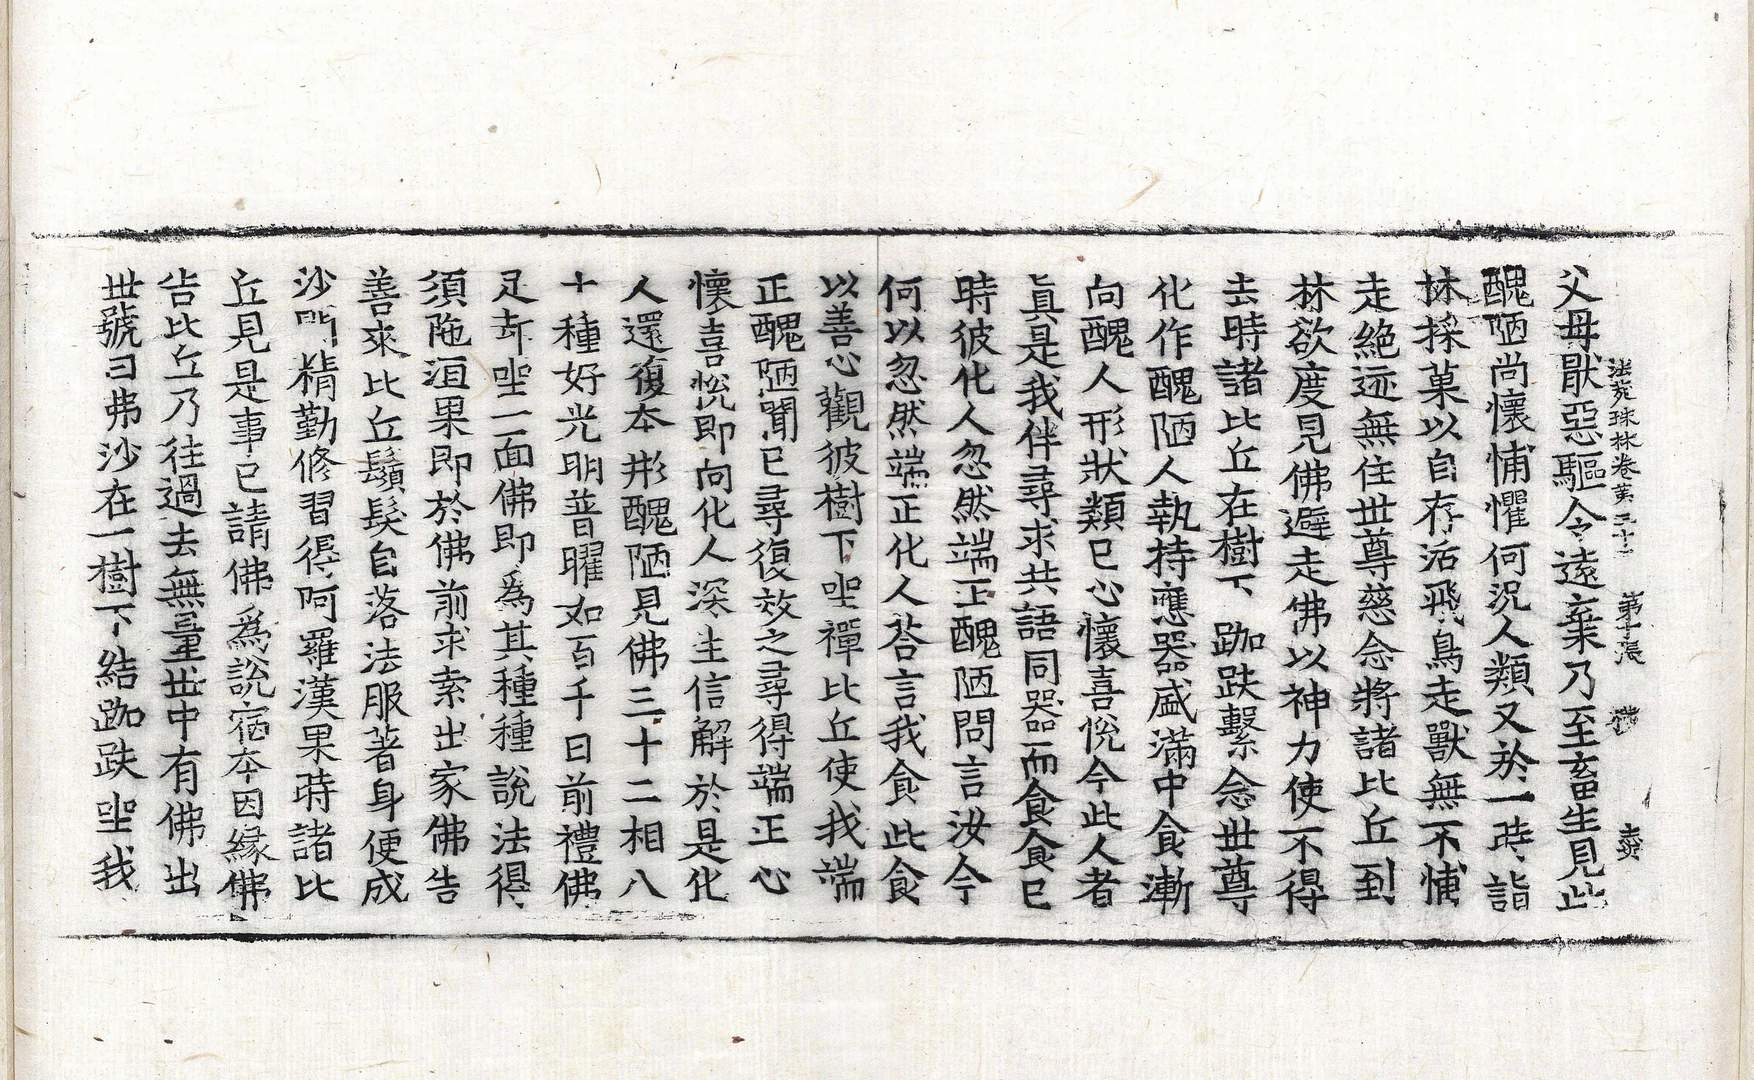 法苑珠林卷第二十一 第十張 禮
父母厭惡驅令遠棄乃至畜生見此
醜陋尚懷怖懼何況人類又於一時詣
林採菓以自存活飛鳥走獸無不怖
走絶迹無住世尊慈念將諸比丘到
林欲度見佛避走佛以神力使不得
去時諸比丘在樹下跏趺繫念世尊
化作醜陋人執持應器盛滿中食漸
向醜人形狀類已心懷喜悅今此人者
眞是我伴尋求共語同器而食食已
時彼化人忽然端正醜陋問言汝今
何以忽然端正化人荅言我食此食
以善心觀彼樹下坐禪比丘使我端
正醜陋聞已尋復效之尋得端正心
懷喜悅即向化人深生信解於是化
人還復本形醜陋見佛三十二相八
十種好光明普曜如百千日前禮佛
足却坐一面佛即爲其種種說法得
須陁洹果即於佛前求索出家佛告
善來比丘鬚髮自落法服著身便成
沙門精勤修習得阿羅漢果時諸比
丘見是事已請佛爲說宿本因縁佛
告比丘乃往過去無量世中有佛出
世號曰弗沙在一樹下結跏趺坐我